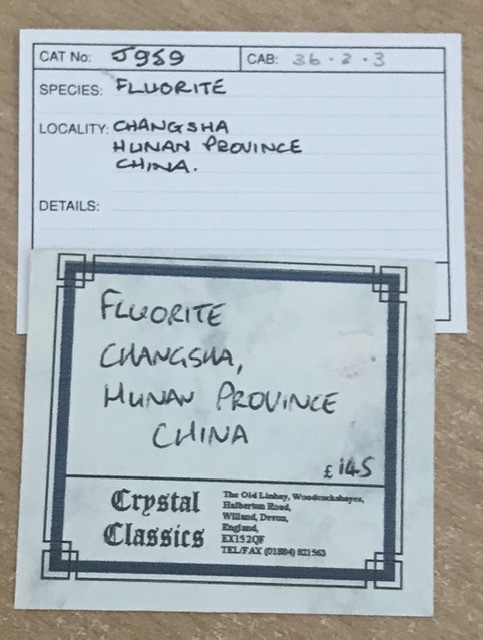 CAT No: J959 CAB: 36·2·3
SPECIES: FLUORITE
LOCALITY: CHANGSHA
HUNAN PROVINCE
CHINA.
DETAILS:
FLUORITE
CHANGSHA,
HUNAN PROVINCE
CHINA
£145
Crystal
Classics
The Old Linhay, Woodcockshayes,
Halberton Road,
Willand, Devon,
England,
EX15 2QF
TEL/FAX (01884) 821563